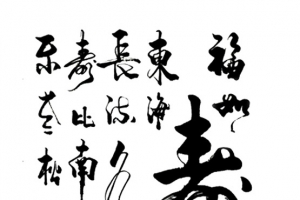 福如
東海
長流水
壽比南
不老松
寿